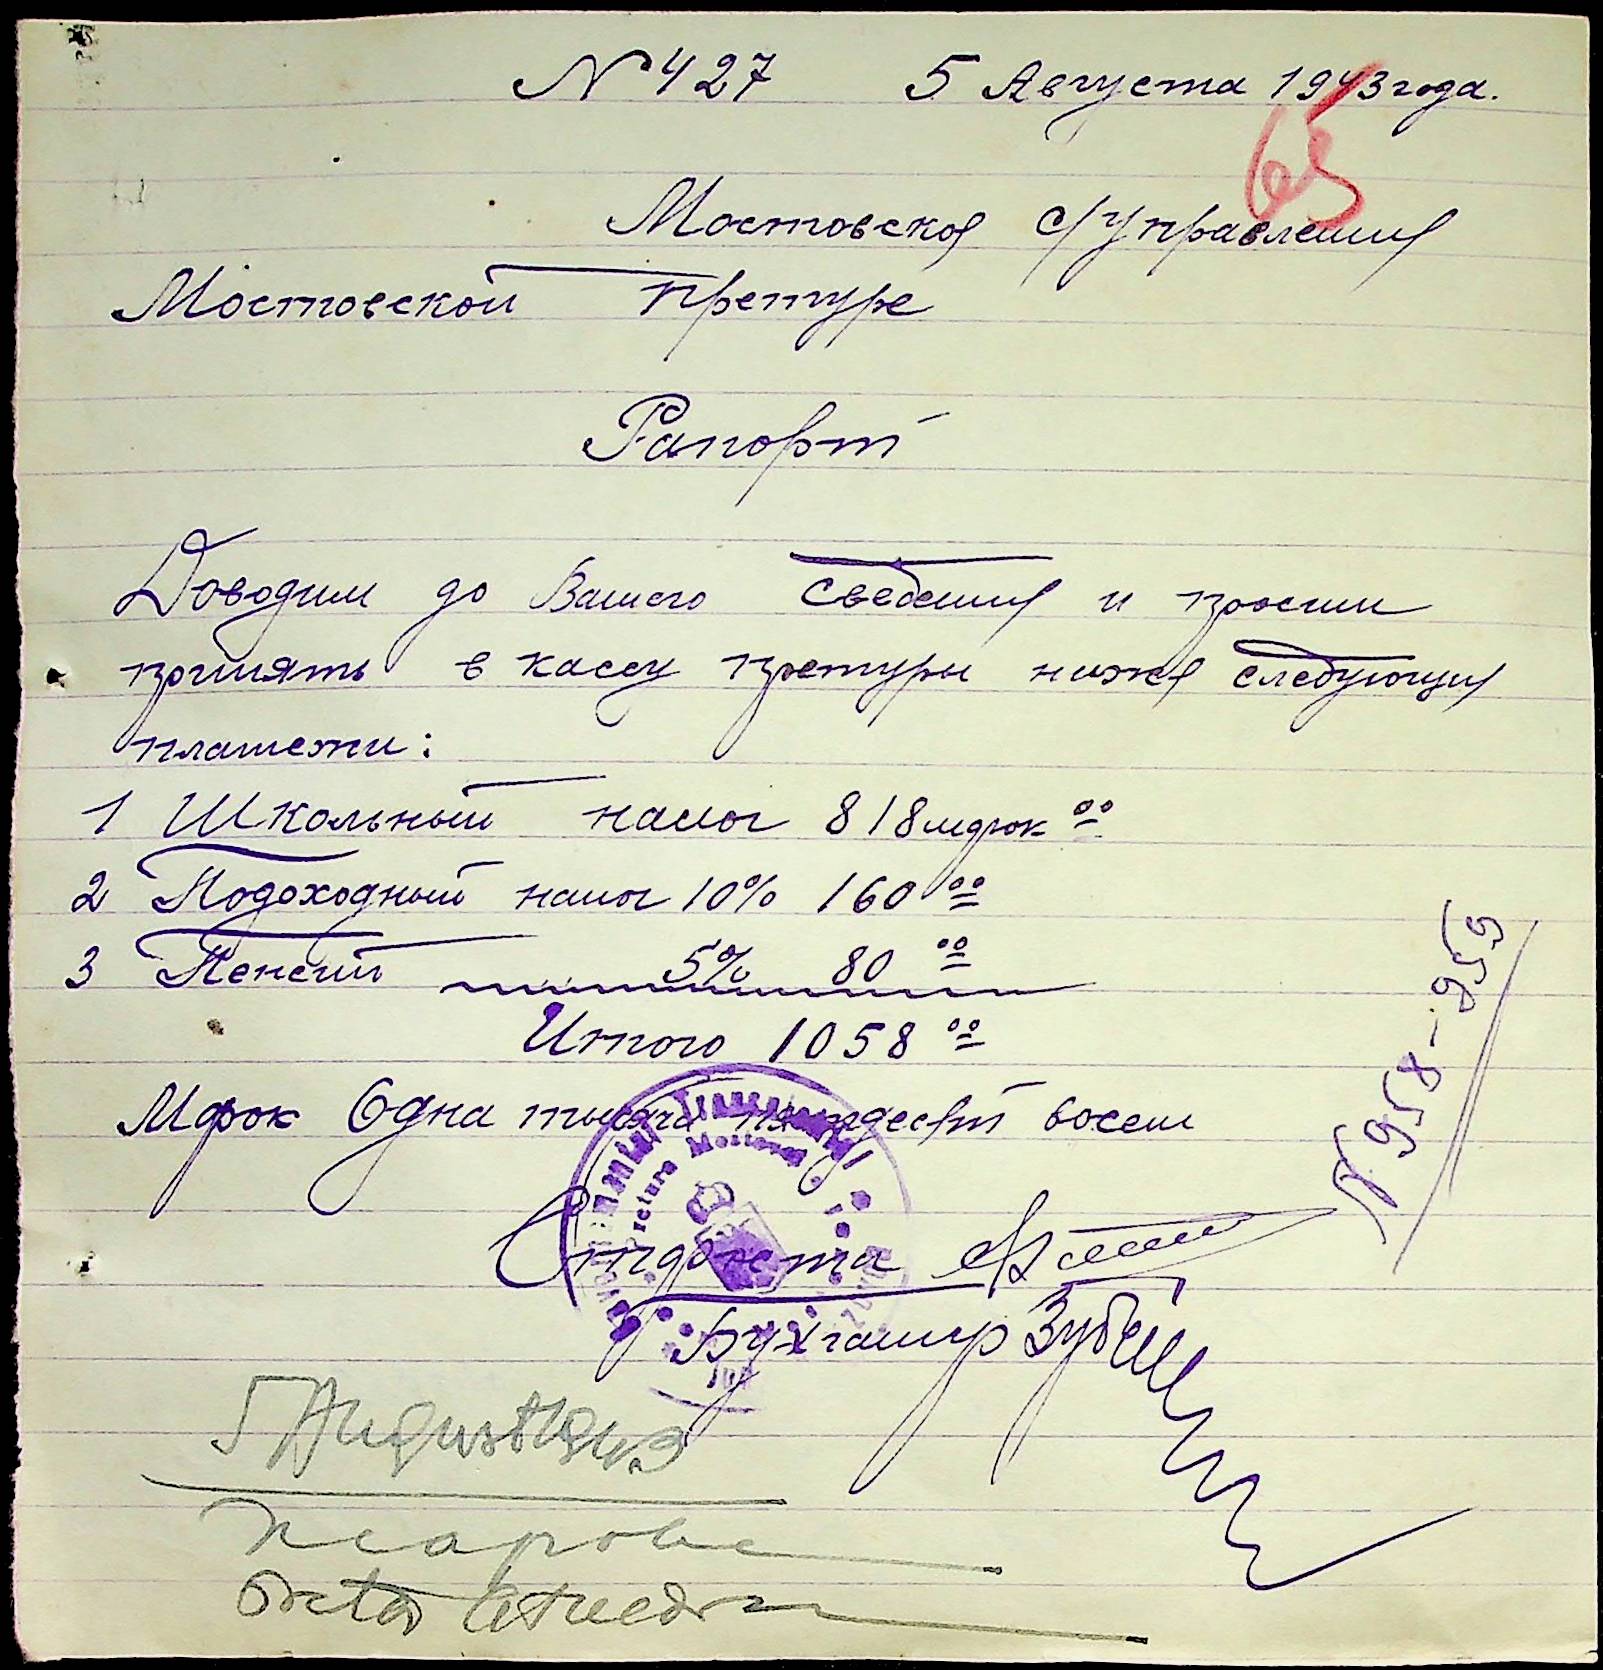 № 427 5 Августа 1943 года.
65
Мостовское с/управления
Мостовской Претуре
Рапорт
Доводим до Вашего сведения и просим
принять в кассу претуры ниже следующие
платежи:
1 Школьный налог 818 марок 00
2 Подоходный налог 10% 160 00
3 Пенсий 5% 80 00
Итого 1058 00
Марок Одна тысяча пятьдесят восем
Pretura Mostovoi
Бухгалтер
№ 958-959
5 August 1943